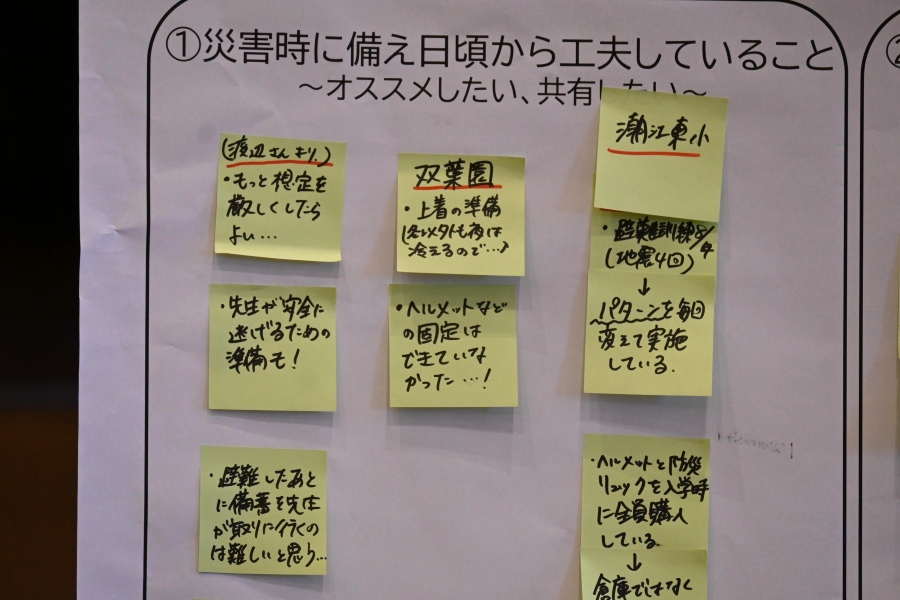 ①災害時に備え日頃から工夫していること
～オススメしたい、共有したい～
(渡辺さんより)
・もっと想定を
厳しくしたら
よい…
・先生が安全に
逃げるための
準備も！
・避難したあと
に備蓄を先生
が取りに行くの
は難しいと思う…
双葉園
・上着の準備
(冬以外も夜は
冷えるので…)
・ヘルメットなど
の固定は
できていな
かった…！
潮江東小
・避難訓練8/4
(地震4回)
↓
パターンを毎回
変えて実施
している.
・ヘルメットと防災
リュックを入学時
に全員購入
している.
↓
倉庫ではなく
②